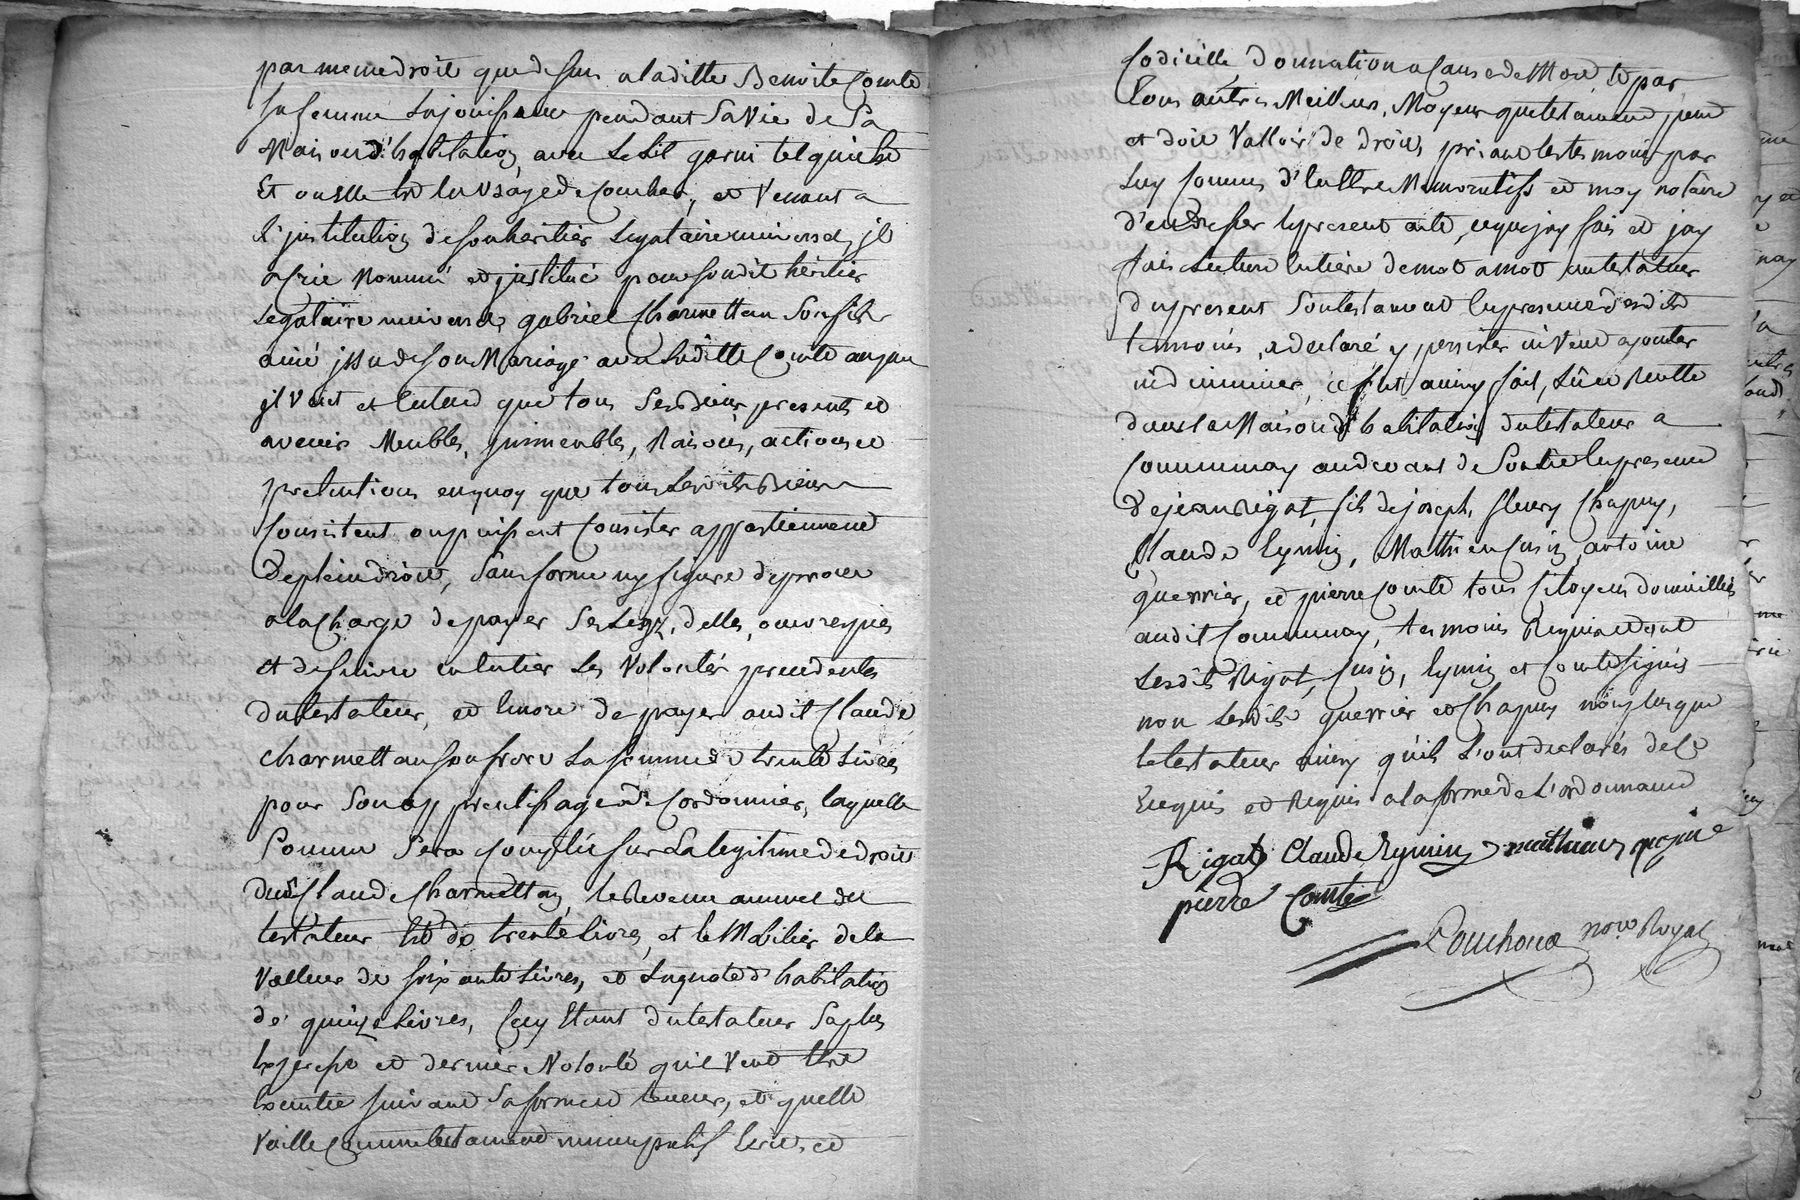 par meme droit que dessus a laditte Benoite Comte
sa femme la jouissance pendant sa vie de sa
Maison d'habitation, avec le lit garni tel qu'il est
Et ou elle est en usage de coucher, et Venant a
l'jnstitution de son heritier legataire universel, jl
a fait Nommé et jnstitué pour sondit héritier
legataire universel gabriel Charmettan son fils
ainé jssu de son Mariage avec laditte Comte auquel
jl Veut et entend que tous ses Biens presents et
avenir Meubles, jmmeubles, Raisons, actions et
pretentions en quoy que tous lesdits Biens
Consistent ou puissent Consister appartiennent
de plein droit, sans forme ny figure de proces
a la Charge de payer ses legz, delles, œuvres pies
et de suivre en entier les Volontés precedentes
du testateur, et encore de payer audit Claude
Charmettan son frere la somme de trente livres
pour son apprentissage de Cordonnier, laquelle
somme sera Comptée sur la legitime de droit
dudt Claude Charmettan, le Revenu annuel du
testateur est de trente livres, et le Mobilier de la
Valleur de soixante livres, et la quote d'habitation
de quinze livres, Cecy Etant du testateur sa plus
Expresse et derniere Volonté qu'il Veut être
Executée suivant sa forme et teneur, et quelle
Vaille Comme testament nuncupatif Ecrit, et
Codicille donnation a Cause de Mort et par
tous autres Meilleurs Moyens que testament peut
et doit Valloir de droit, priant les temoins par
luy Connus d'en être Memoratifs et moy notaire
d'en dresser le present acte, ce que j'ay fais et j'ay
fais lecture entiere de mot a mot au testateur
du present son testament en presence desdits
temoins, a declaré y persister ni Veut ajouter
ni diminuer, ce fut ainsy fait, Lû et Recitté
dans la Maison d'habitation du testateur a
Communay audevant de en presence
de jean Rigat, fils de joseph, fleury Chapuy,
Claude Eymin, Mathieu Cusin, antoine
guerrier, et pierre Comte tous Citoyens domiciliés
audit Communay, temoins Requis et dont
lesdits Rigat, Cusin, Eymin et Comte signés
non lesdits guerrier et Chapuy non plus que
le testateur ainsy qu'ils l'ont declarés de ce
Enquis et Requis a la forme de l'ordonnance
Rigat Claude Eymin mathieu
pierre Comte
Couchoud nore Royal